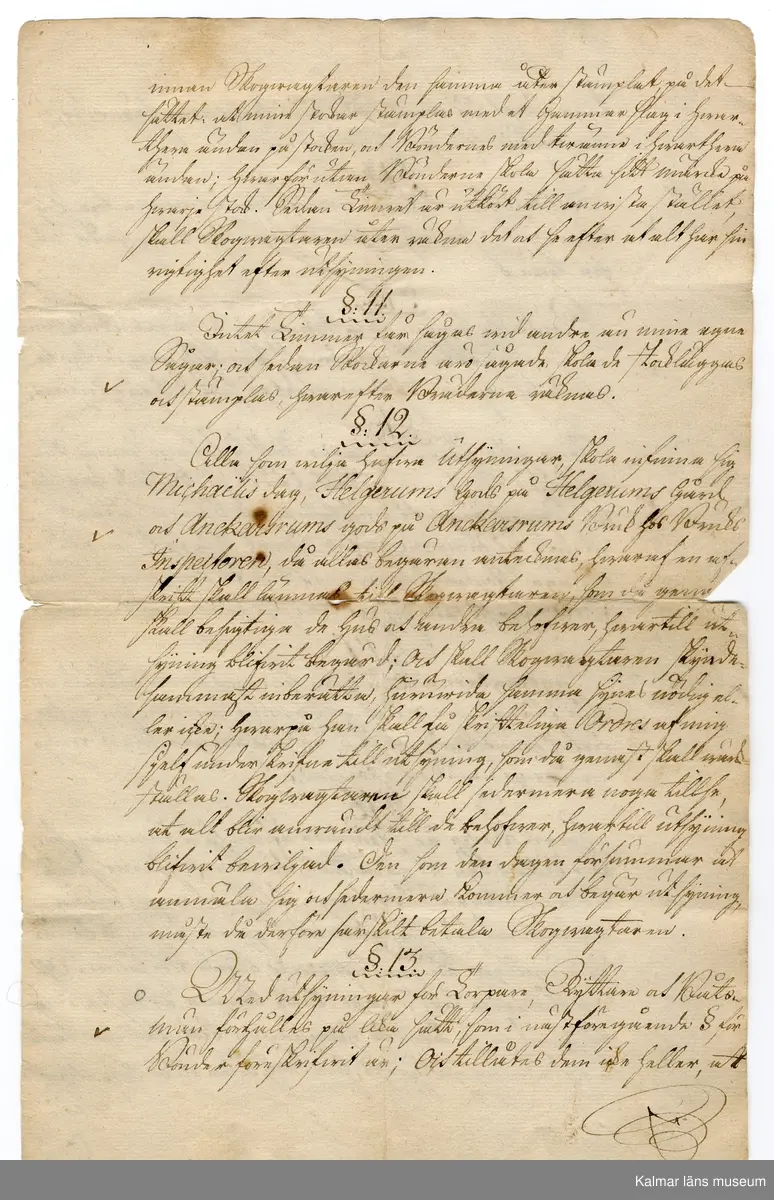 innan Skogwagtaren den samma åter stämplat, på det
sättet: at mine stockar stämplas med et Hammar slag i hwar-
thera ändan på stocken, och Böndernes med twänne i hwarthera
ändan; hwarförutan Bönderne skola sätta sitt märcke på
hwarje stock. Sedan Timret är utkört till anwista stället,
skall Skogwagtaren åter räkna det och se efter at alt har sin
rigtighet efter utsyningen.
§: 11.
Intet Timmer får sågas wid andre än mine egne
Sågar; och sedan Stockarne äro sågade, skola de
och stämplas, hwarefter Bräderne räknas.
§: 12.
Alla som wilja hafwa Utsyningar, skola infinna sig
Michaëlis dag, Helgerums Gods på Helgerums Gård
och Anckarsrums gods på Anckarsrums Bruk hos Bruks
Inspectoren, då allas begäran antecknas, hwaraf en af-
skrift skall lämnas till Skogwagtaren, som då genast
skall besigtiga de Hus och andra behofwer, hwartill ut-
syning blifwit begärd; och skall Skogwagtaren skynde-
sammast inberätta, huruwida samma synes nödig el-
ler icke; hwarpå han skall få skrifteliga Ordres af mig
sjelf underskrifne till utsyning, som då genast skall wärk-
ställas. Skogwagtaren skall sedermera noga tillse,
at alt blir anwändt till de behofwer, hwartill utsyning
blifwit bewiljad. Den som den dagen försummar at
anmäla sig och sedermera kommer at begära utsyning,
måste då derföre särskilt betala Skogwagtaren.
§: 13.
Med utsyningar för Torpare, Ryttare och Båts-
män förhålles på lika sätt, som i nästföregående §, för
Bönder föreskrifwit är; och tillåtes dem icke heller, att
Kalmar läns museum